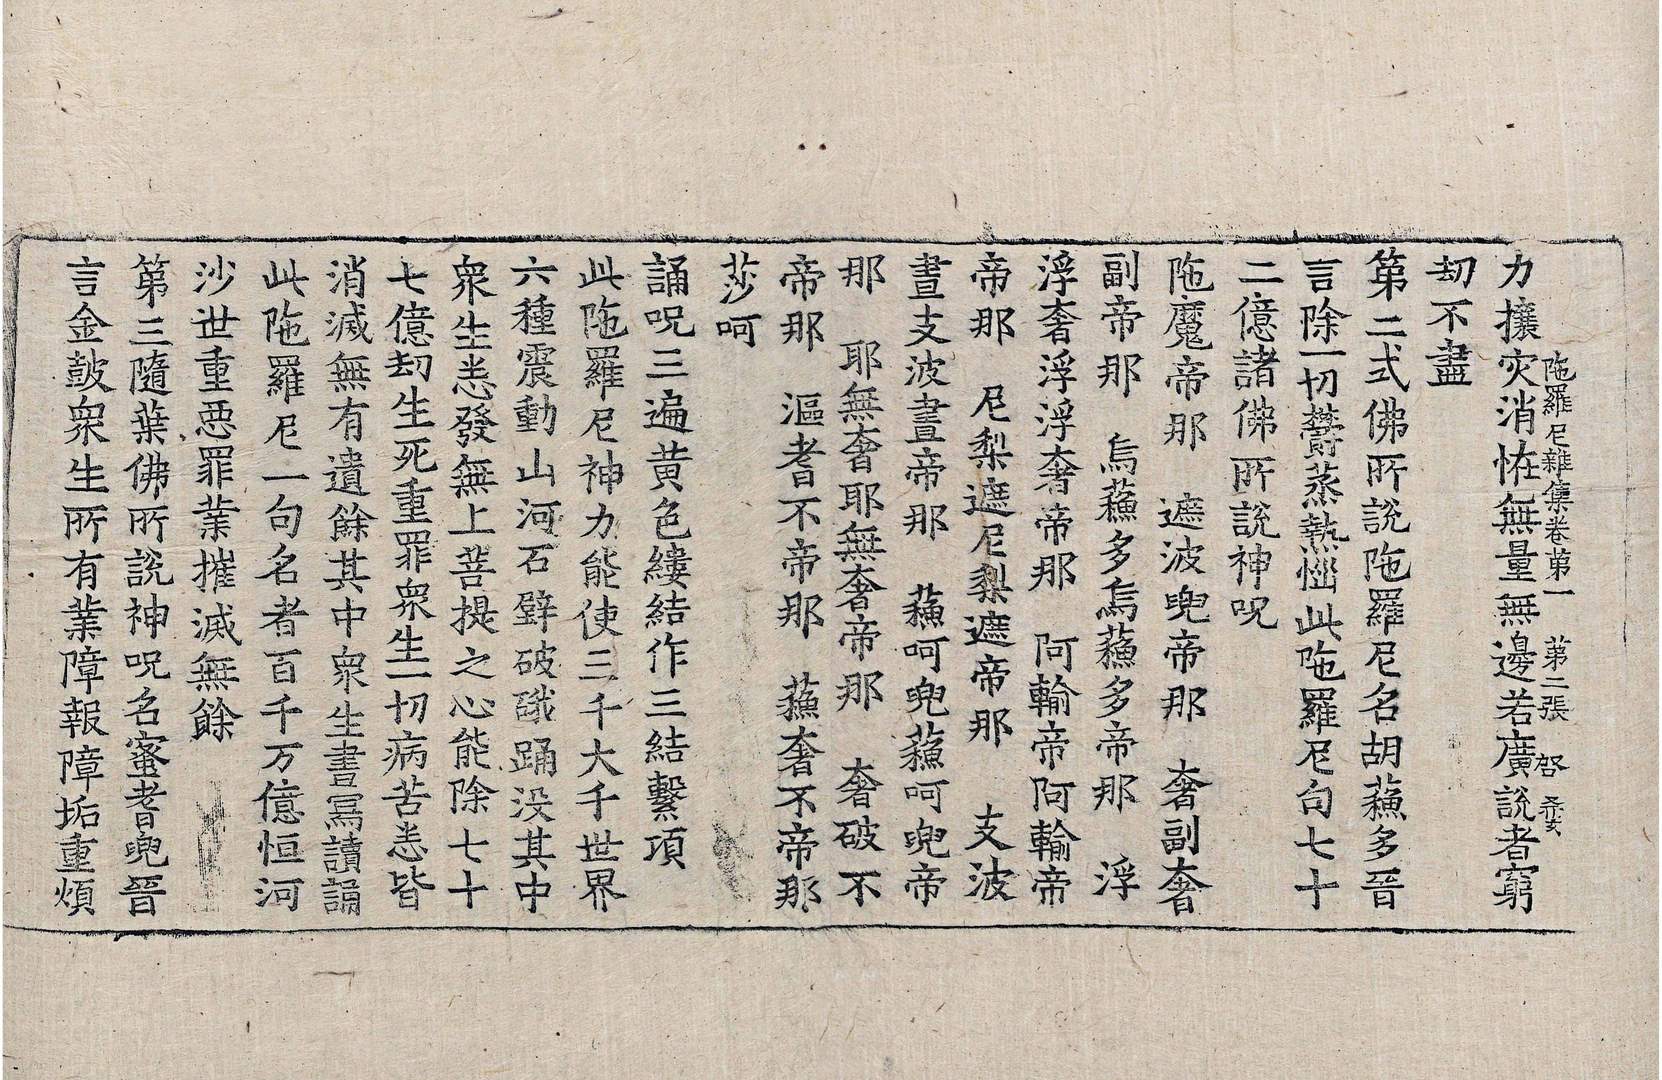 陁羅尼雜集卷苐一　苐二張　啓
力攘灾消恠無量無邊若廣說者窮
刧不盡
第二式佛所說陁羅尼名胡蘓多晉
言除一切欝蒸熱惱此陁羅尼句七十
二億諸佛所說神呪
陁魔帝那　遮波兜帝那　奢副奢
副帝那　烏蘓多烏蘓多帝那　浮
浮奢浮浮奢帝那　阿輸帝阿輸帝
帝那　尼梨遮尼梨遮帝那　支波
晝支波晝帝那　蘓呵兜蘓呵兜帝
那　耶無奢耶無奢帝那　奢破不
帝那　漚耆不帝那　蘓奢不帝那
莎呵
誦呪三遍黄色縷結作三結繫項
此陁羅尼神力能使三千大千世界
六種震動山河石壁破碎踊没其中
衆生悉發無上菩提之心能除七十
七億刧生死重罪衆生一切病苦悉皆
消滅無有遺餘其中衆生書寫讀誦
此陁羅尼一句名者百千万億恒河
沙世重惡罪業摧滅無餘
第三隨葉佛所說神呪名蜜耆兜晉
言金鼓衆生所有業障報障垢重煩